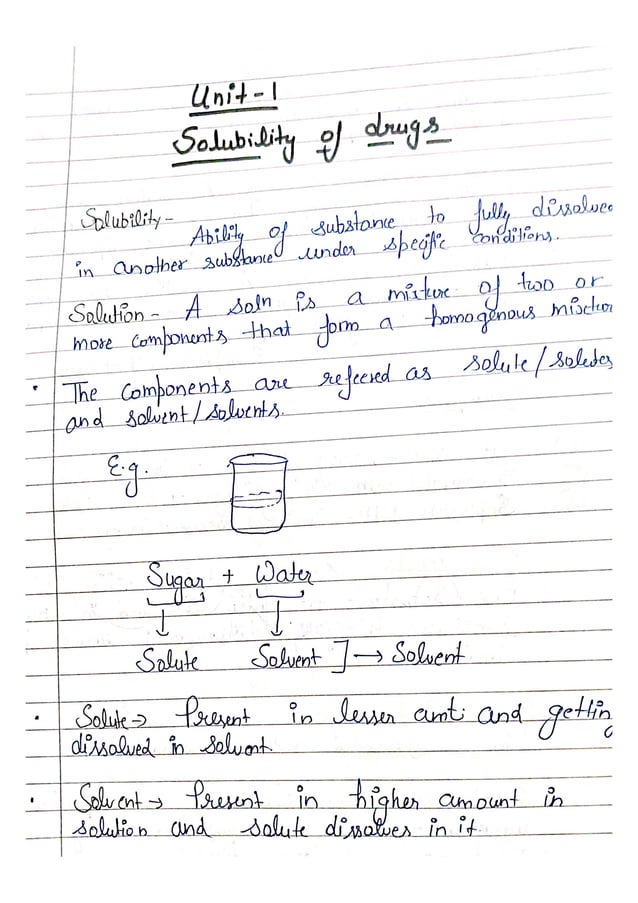 Unit-1
Solubility of drugs
Solubility -
Ability of substance to fully dissolve
in another substance under specific conditions.
Solution - A soln is a mixture of two or
more components that form a homogenous mixture
• The components are refeered as solute/solutes
and solvent/solvents.
E.g.
Sugar + Water
Solute Solvent ] → Solvent
• Solute → Present in lesser amt: and getting
dissolved in solvent
• Solvent → Present in higher amount in
solution and solute dissolves in it